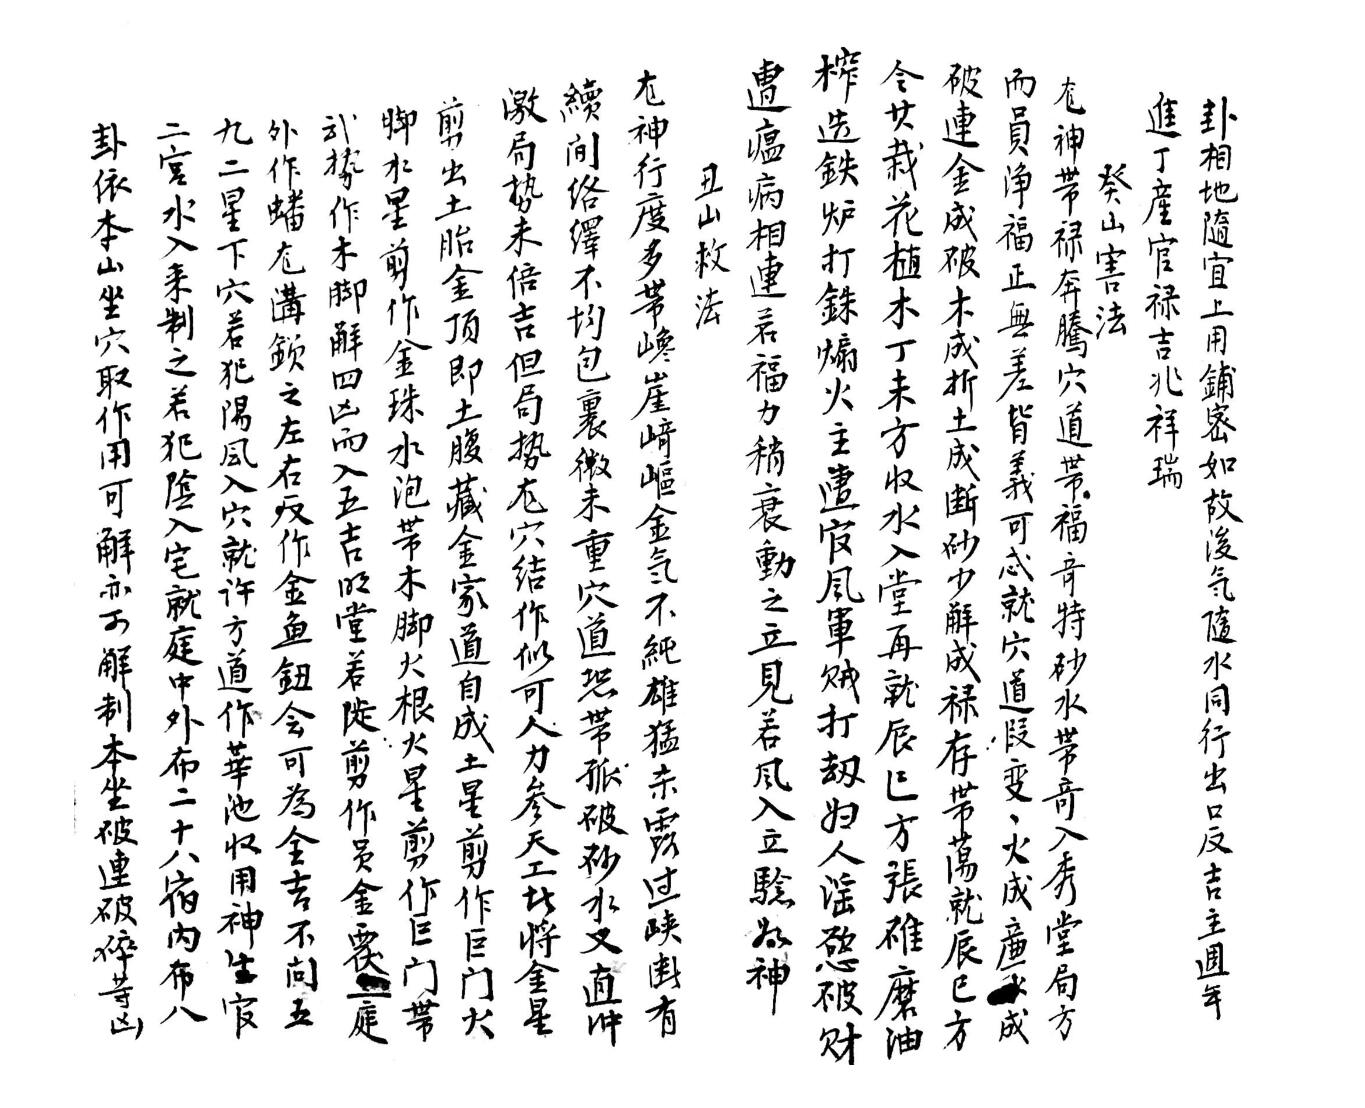 卦相地隨宜上用鋪密如故後气隨水同行出口反吉主週年
進丁産官禄吉兆祥瑞
癸山害法
龙神带禄奔騰穴道带福奇特砂水带竒入秀堂局方
而員淨福正無差皆義可忒就穴道叚变丶火成亷成
破連金成破木成折土成断砂少解成禄存带荡就辰巳方
令廿栽花植木丁未方收水入堂再就辰巳方張碓磨油
榨造鉄炉打銖煽火主遭官風軍贼打刼妇人淫慾破财
遭瘟病相連若福力稍衰動之立見若风入立驗如神
丑山救法
龙神行度多带巉崖﨑嶇金气不純雄猛杀露过峡断有
續间络繹不均包裹微未重穴道恐带孤破砂水又直冲
激局势未倍吉但局势龙穴结作似可人力参天工比将金星
剪出土胎金顶即土腹藏金家道自成土星剪作巨门火
脚水星剪作金珠水泡带木脚火根火星剪作巨门带
武像作木脚解四凶而入五吉明堂若陡剪作员金覆庭
外作蟠龙溝鎖之左右及作金鱼鈕会可為全吉不问五
九二星下穴若犯陽风入穴就许方道作華池收用神生官
二宫水入来制之若犯陰入宅就庭中外布二十八宿内布八
卦依本山坐穴取作用可解亦可解制本坐破連破碎等凶